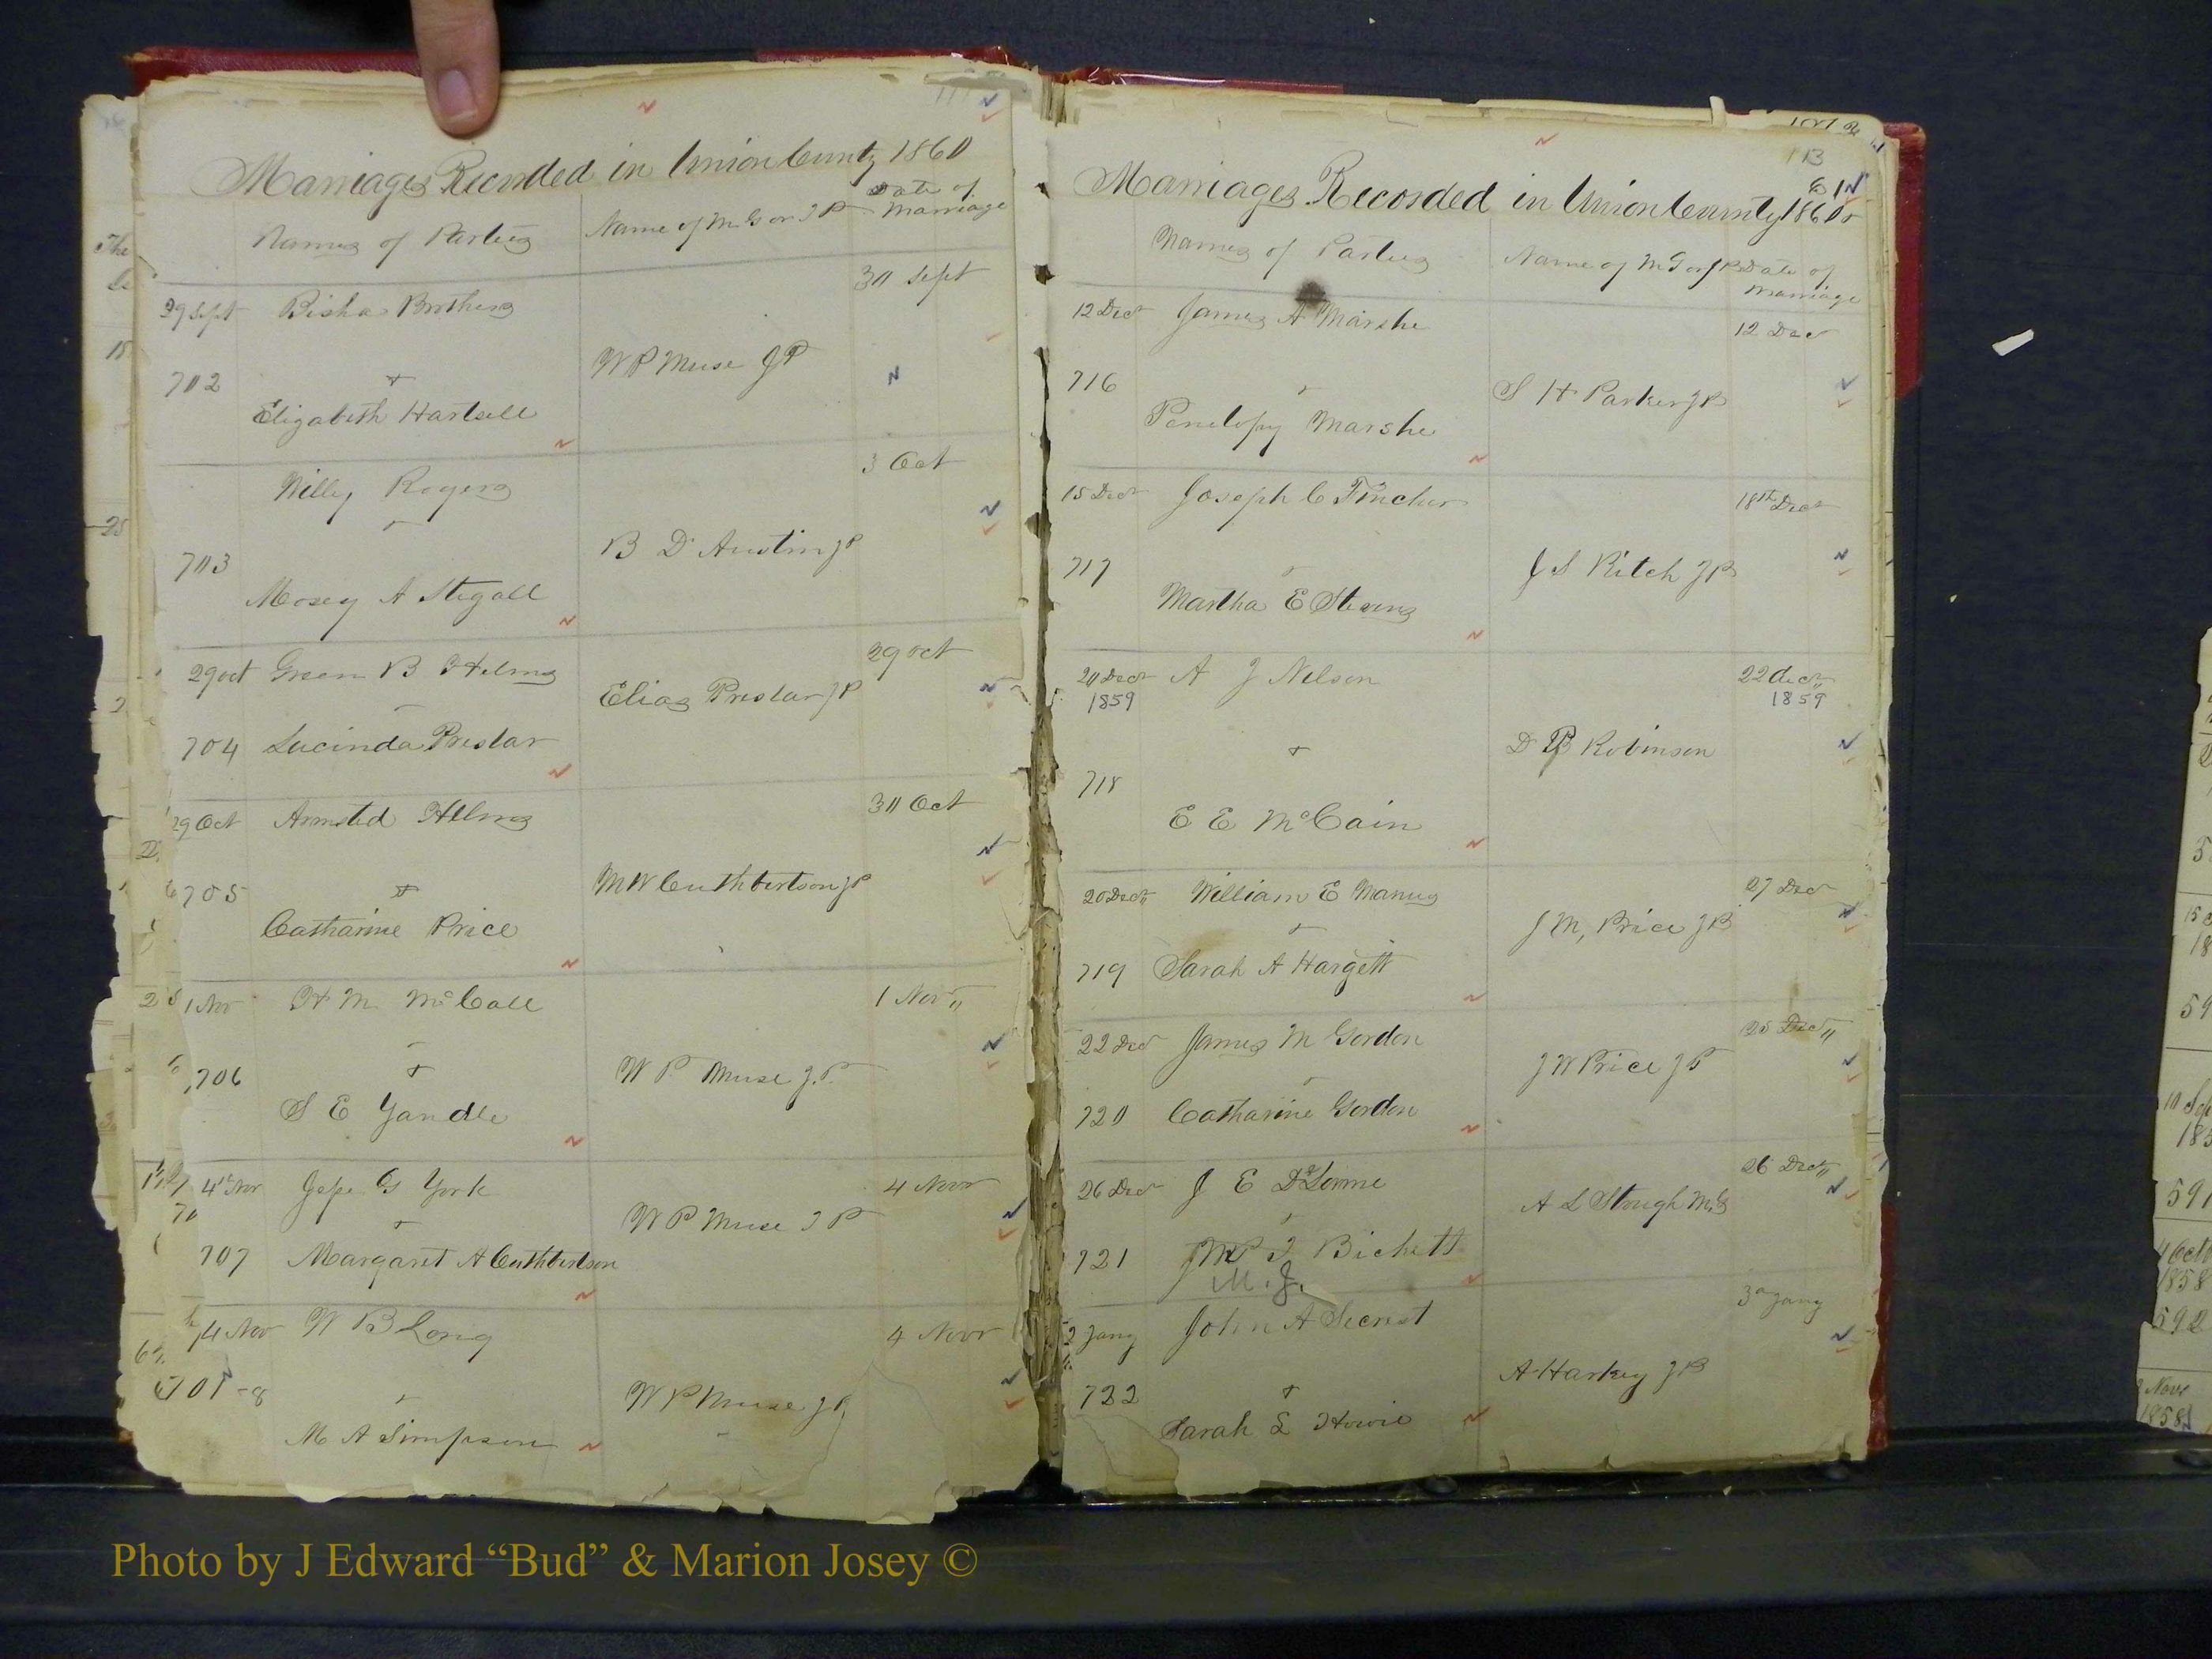 Marriages Recorded in Union County 1860
Names of Parties
Name of M. G or J P
Date of
Marriage
29 Sept Bisha Brothers
30 Sept
702
&
W P Muse J P
Elizabeth Hartsell
Willy Rogers
3 Oct
703
B D Austin J P
Mosey A Stegall
29 oct Green B Helms
29 oct
Elias Preslar J P
704 Lucinda Preslar
29 Oct Armsted Helms
30 Oct
705
&
M W Cuthbertson J P
Catharine Price
1 Nov H M McCall
1 Nov
706
&
W P Muse J.P.
S E Yandle
4th Nov Jesse G York
4 Novr
&
W P Muse J P
707 Margaret A Cuthbertson
4 Nov W B Long
4 Novr
701-8
W P Muse J P
M A Simpson
Marriages Recorded in Union County 1860
61
Names of Parties
Name of M G or J P
Date of
Marriage
12 Dec James A Marshe
12 Dec
716
S H Parker J P
Penelopy Marshe
15 Dec Joseph C Fincher
18th Dec
717
J S Ritch J P
Martha E Stevens
20 Dec A J Nelson
1859
22 dec
1859
&
D P Robinson
718
E E McCain
20 Dec William E Manus
27 Dec
J M, Price J P
719 Sarah A Hargett
22 Dec James M Gordon
25 Dec
J W Price J P
720 Catharine Gordon
26 Dec J E DeLorme
26 Dec
A L Stough M.G
721
Bickett
M. J.
2 Jany John A Secrest
3 Jany
722
&
A Harkey J P
Sarah L Howie
Photo by J Edward “Bud” & Marion Josey ©